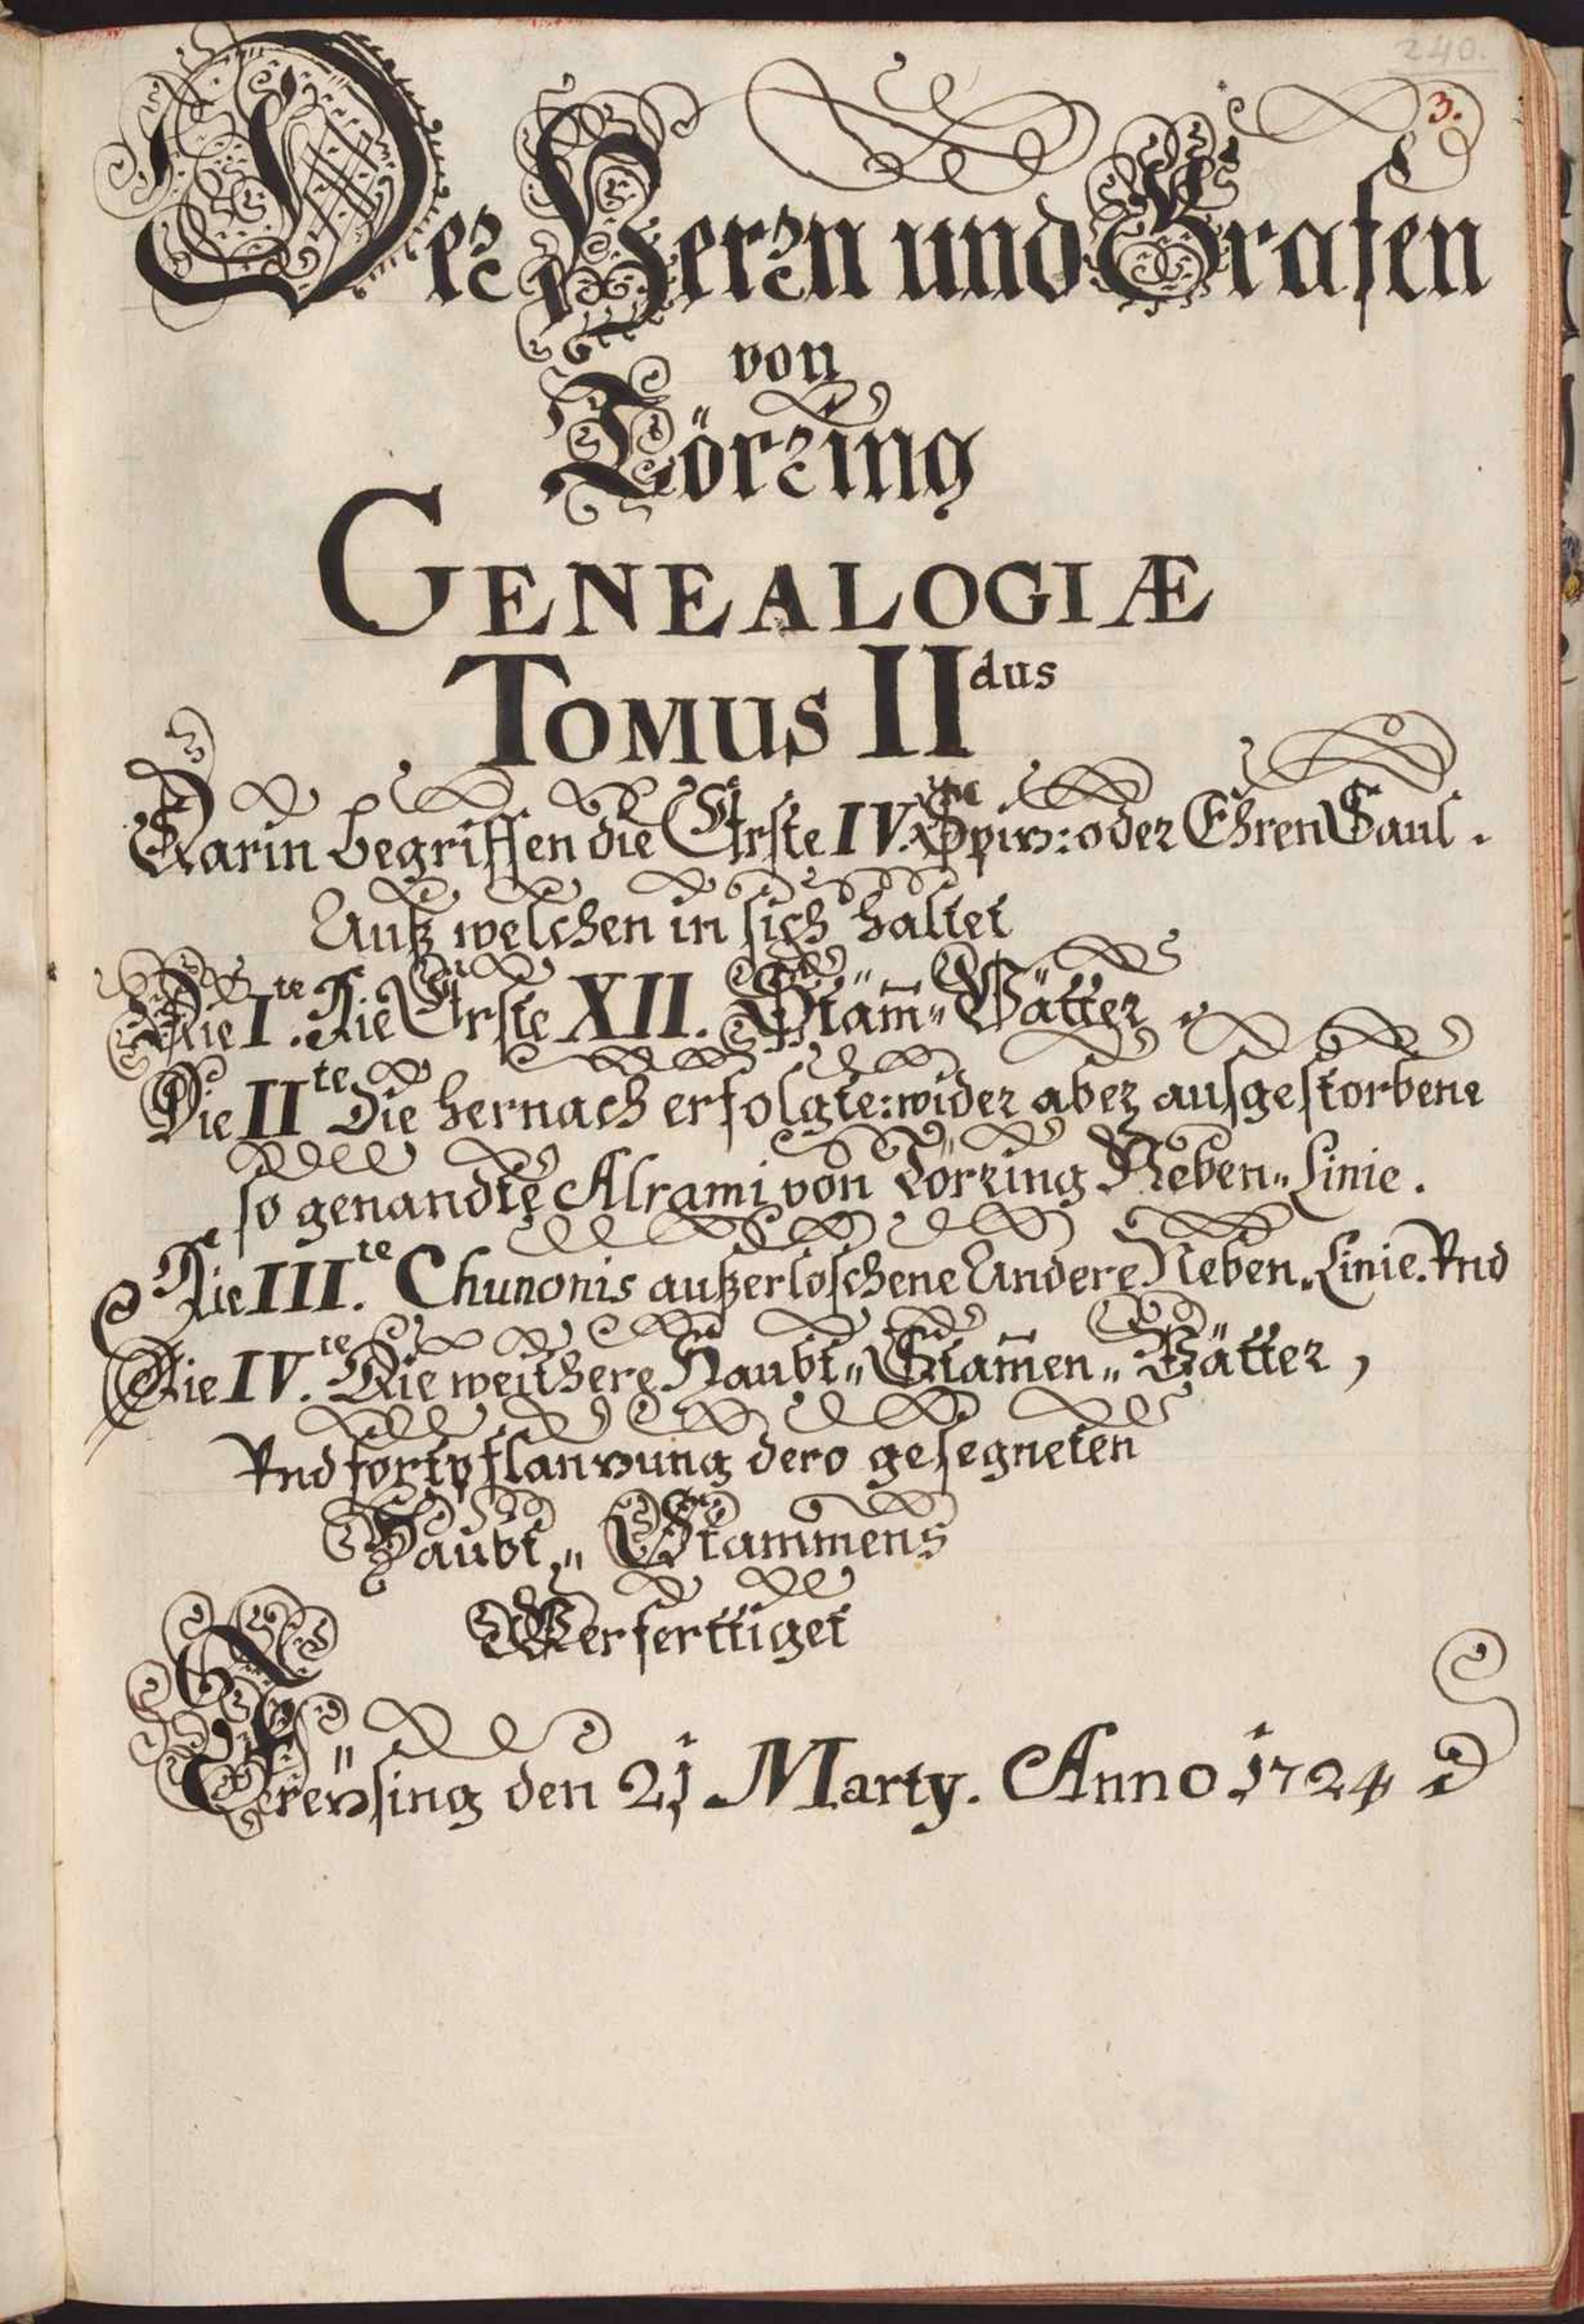 240.
3.
Der Herrn und Grafen
von
Törring
GENEALOGIÆ
TOMUS II dus
Darin begriffen die Erste IV. Spiz: oder Ehren Saul.
Auß welchen in sich haltet
Die I.te Die Erste XII. Stam̄= Vätter.
Die II te Die hernach erfolgte: wider aber ausgestorbene
so genandte Alrami von Törring Neben= Linie.
Die III.te Chunonis außerloschene Andere Neben= Linie. Vnd
Die IV.te Die weithere Haubt= Stam̄en= Vätter,
Vnd fortpflanzung dero gesegneten
Haubt= Stammens
Verferttiget
Freÿsing den 21 Marty. Anno 1724